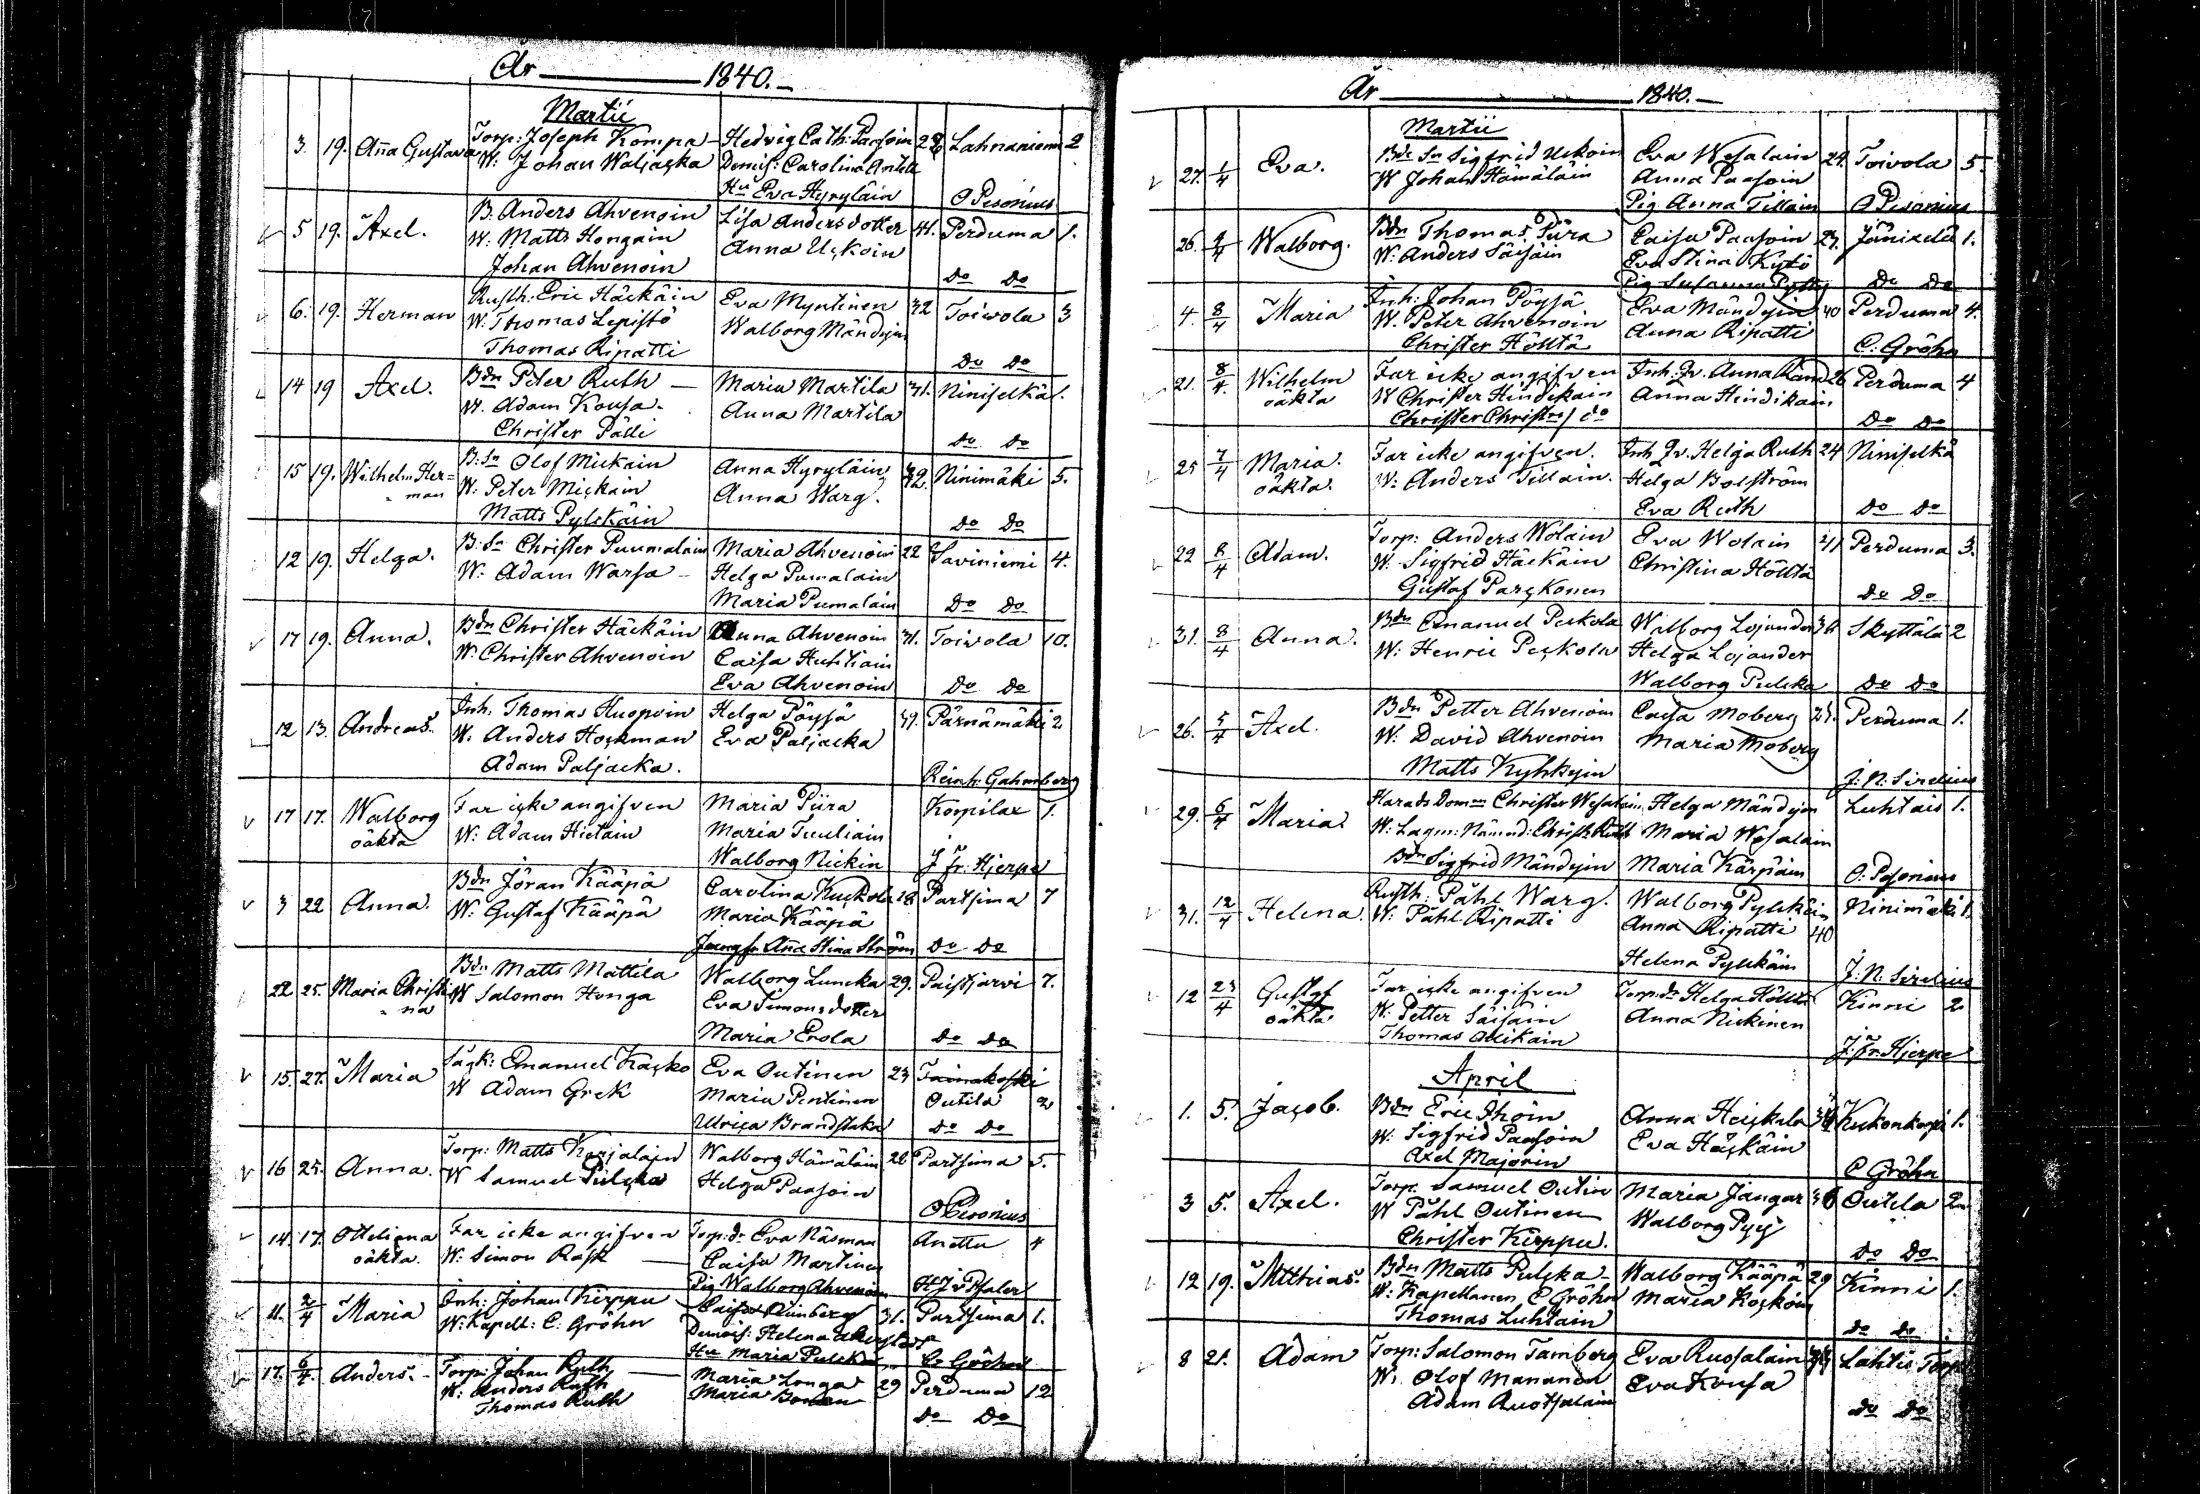 År 1840.
Martii
3. 19. Aña Gustava Torp: Joseph Kompa Hedvig Cath: Paasoin 28 Lahnaniemi 2
W. Johan Waljacka Demois: Carolina
Hu Eva Hyryläin O Pesonius
5 19. Axel. B. Anders Ahvenoin Lisa Andersdotter 41. Perduma 1.
W. Matts Hongain Anna Uckoin
Johan Ahvenoin Do Do
6. 19. Herman Rusth. Eric Häckäin Eva Myntinen 32 Toivola 3
W. Thomas Lepistö Walborg Mändyin
Thomas Ripatti Do Do
14 19 Axel. Bdn Peter Ruth Maria Martila 31. Niniselkä 1.
W. Adam Kousa. Anna Martila
Christer Pätti Do Do
15 19. Wilhelm Her= B: Sn Olof Mickain Anna Hyryläin 32. Ninimäki 5.
man W. Peter Mickain Anna Warg.
Matts Pylckäin Do Do
12 19. Helga. B: Sn Christer Puumalain Maria Ahvenoin 22 Saviniemi 4.
W. Adam Warsa Helga Pumalain
Maria Pumalain Do Do
17 19. Anna. Bdn Christer Häckäin Anna Ahvenoin 31. Toivola 10.
W. Christer Ahvenoin Caisa Huhtiain
Eva Ahvenoin Do Do
12 13. Andreas. Inh. Thomas Huopoin Helga Pöysä 39. Pärnämäki 2.
W. Anders Hockman Eva Paljacka
Adam Paljacka. Reinh: Gahmberg
17 17. Walborg Far icke angifven Maria Piira Korpilax 1.
oäkta W. Adam Hietain Maria Tuuliain
Walborg Nickin J Fr. Hjerpe
3 22 Anna. Bdn Jöran Kääpä Carolina Kuckola 28 Partsima 7
W. Gustaf Kääpä Maria Kääpä
Jungfr Aña Stina Ström Do Do
22 25. Maria Christi Bdn Matts Mattila Walborg Luncka 29. Paistjärvi 7.
na W Salomon Honga Eva Simonsdotter
Maria Erola Do Do
15. 27. Maria Emanuel Kacko Eva Outinen 23 Tainakoski
W Adam Grek Maria Pentinen Outila 2
Ulrica Brandstaka Do Do
16 25. Anna. Torp: Matts Karjalain Walborg Hämäläin 28 Partsima 5.
W Samuel Pulcka Helga Paasoin
O Pesonius
14. 17. Otteliana Far icke angifven Torp:dr Eva Näsman Anettu 4
oäkta. W. Simon Rask Caisa Martinen
Pig Walborg Ahvenoin
11. 2/4 Maria Inh: Johan Kirppu Caisa Rimberg 31. Partsima 1.
W: Kapell: C: Gröhn Demois: Helena
Hu Maria Pulcka C: Gröhn
17. 6/4. Anders. Torp: Johan Ruth Maria Longa 29 Perduma 12
W. Anders Ruth Maria
Thomas Ruth Do Do
År 1840.
Martii
27. 1/4 Eva. Bde Sn Sigfrid Uckoin Eva Wesalain 24. Toivola 5.
W Johan Hämäläin Anna Paasoin
Pig Anna Tillain O Pesonius
26. 2/4 Walborg. Bdn Thomas Piira Caisa Paasoin 27. Jänixelä 1.
W: Anders Säisäin Eva Stina Kytö
Pig Susanna Pytty Do Do
4. 8/4 Maria Inh: Johan Pöysä Eva Mändyin 40 Perduma 4.
W. Peter Ahvenoin Anna Ripatti
Christer Hölttä C: Gröhn
21. 8/4. Wilhelm Far icke angifven Inh. Qv. Anna 26 Perduma 4
oäkta W Christer Hindikain Anna Hindikain
Christer Christers/ do Do Do
25 7/4 Maria. Far icke angifven. Inh Qv. Helga Ruth 24 Niniselkä
oäkta. W. Anders Tillain. Helga Bolström
Eva Ruth Do Do
22 8/4 Adam. Torp: Anders Wolain Eva Wolain 21 Perduma 3.
W. Sigfrid Häckäin Christina Hölttä
Gustaf Parckonen Do Do
31. 8/4 Anna. Bdn Emanuel Peckola Walborg Lojander 36 Skyttälä 2
W: Henric Peckola Helga Lojander
Walborg Pulcka Do Do
26. 5/4 Axel. Bdn Petter Ahvenoin Caisa Moberg 25. Perduma 1.
W. David Ahvenoin Maria Moberg
Matts Kyhkyin J: N: Sirelius
29. 6/4 Maria Harads Domn Christer Wesalain Helga Mändyin Luhtais 1.
W. Lagm: Nämnd: Christ: Ruth Maria Wesalain
Bdn Sigfrid Mändyin Maria Kärpäin O: Pesonius
31. 12/4 Helena. Rusth: Påhl Warg. Walborg Pylckäin Ninimäki 1.
W. Påhl Ripatti Anna Ripatti 40
Helena Pylckäin J: N: Sirelius
12 23/4 Gustaf Far icke angifven Torp:dr Helga Hölttä Kinni 2
oäkta W. Petter Säisäin Anna Nickinen
Thomas Atikain J: Fr: Hjerpe
April
1. 5. Jacob. Bdn Eric Ihoin Anna Heickala 34 Kukonkorpi 1.
W. Sigfrid Paasoin Eva Häckäin
Axel Majorin C Gröhn
3 5. Axel. Torp. Samuel Outin Maria Jangar 36 Outila 2.
W Påhl Outinen Walborg Pyy
Christer Kirppu. Do Do
12 19. Mtthias. Bdn Matts Pulcka Walborg Kääpä 29 Kinni 1.
W: Kapellanen C Gröhn Maria Kockoin
Thomas Luhtain Do Do
8 21. Adam Torp: Salomon Tamberg Eva Ruosalain Lahtis Torp
W. Olof Mananen Eva Kousa
Adam Ruotsalain Do Do